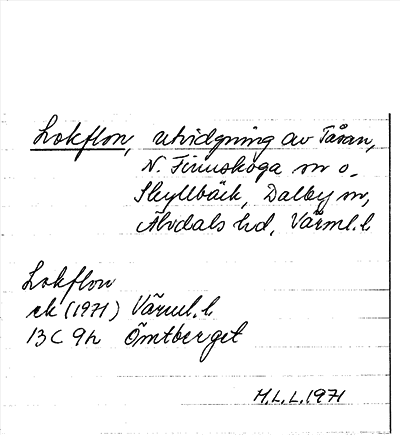 Lokflon, utvidgning av Tåsan,
N. Finnskoga sn o.
Skyllbäck, Dalby sn,
Älvdals hd, Värml. l
Lokflon
ek (1971) Värml. l
13 C 9h Ömtberget
H.L.L. 1971